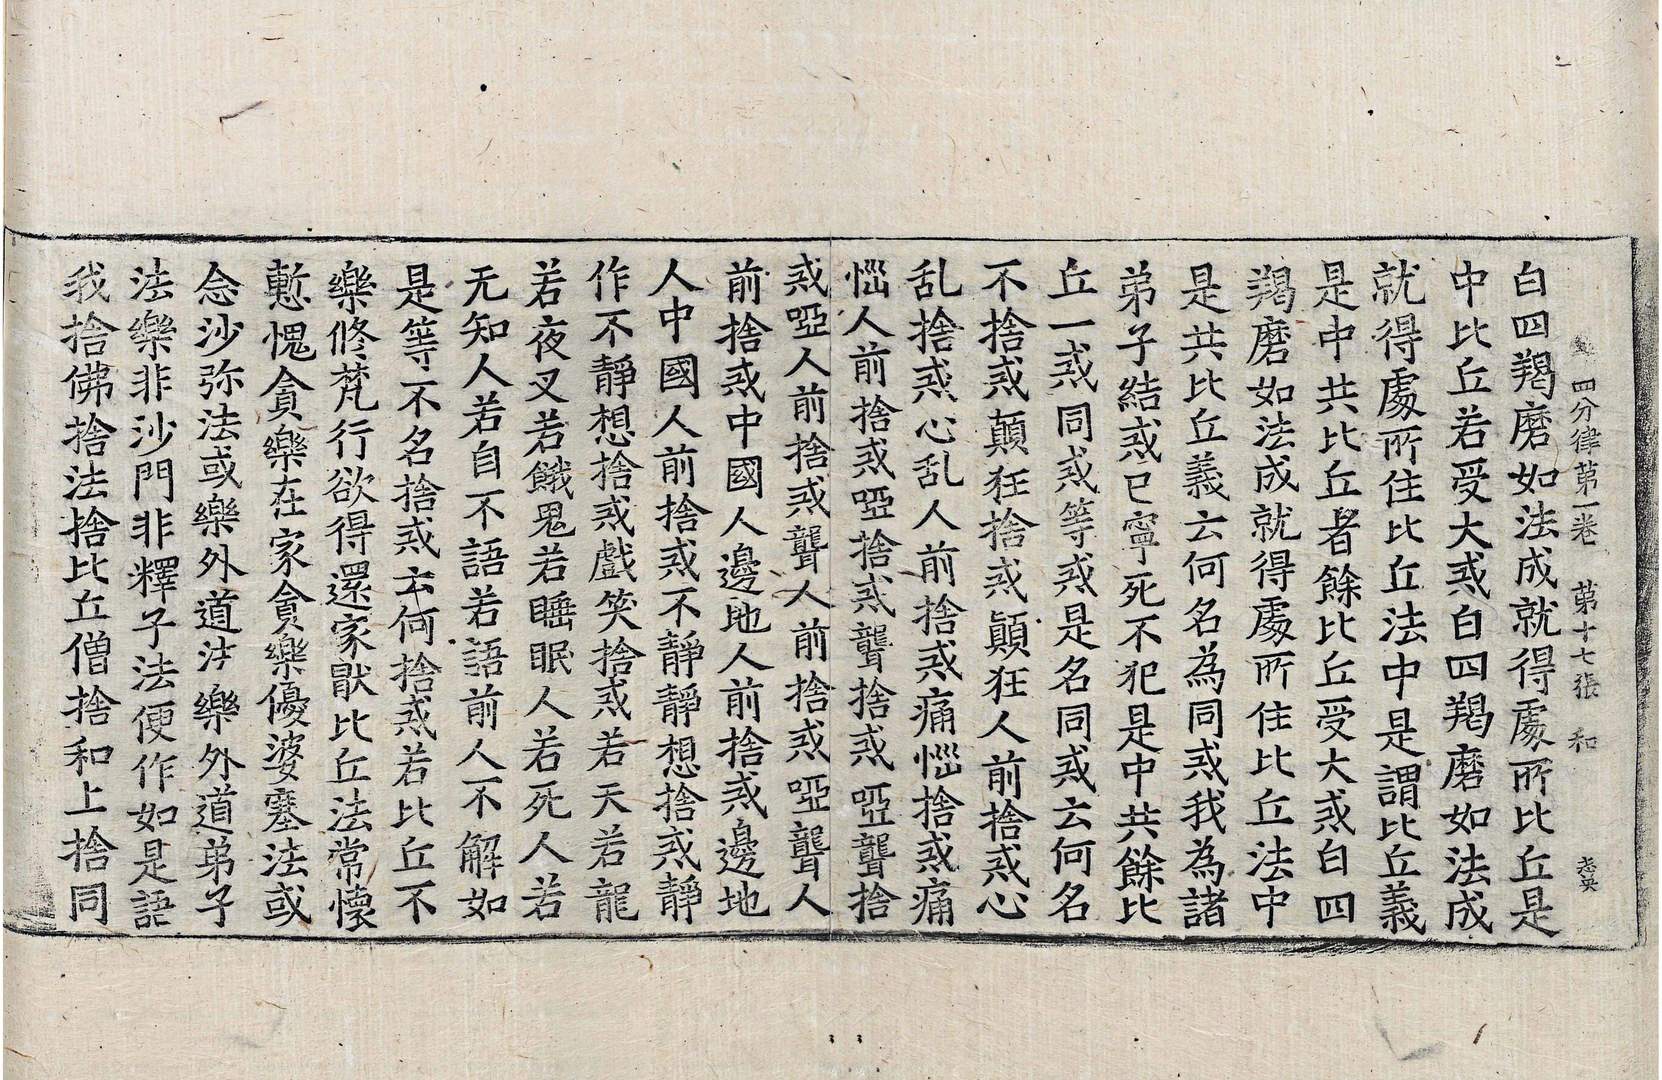 四分律第一卷 第十七張 和 志英
白四羯磨如法成就得處所比丘是
中比丘若受大戒白四羯磨如法成
就得處所住比丘法中是謂比丘義
是中共比丘者餘比丘受大戒白四
羯磨如法成就得處所住比丘法中
是共比丘義云何名為同戒我為諸
弟子結戒已寧死不犯是中共餘比
丘一戒同戒等戒是名同戒云何名
不捨戒顛狂捨戒顛狂人前捨戒心
乱捨戒心乱人前捨戒痛惱捨戒痛
惱人前捨戒啞捨戒聾捨戒啞聾捨
戒啞人前捨戒聾人前捨戒啞聾人
前捨戒中國人邊地人前捨戒邊地
人中國人前捨戒不靜靜想捨戒靜
作不靜想捨戒戲笑捨戒若天若龍
若夜叉若餓鬼若睡眠人若死人若
无知人若自不語若語前人不解如
是等不名捨戒云何捨戒若比丘不
樂修梵行欲得還家猒比丘法常懷
慙愧貪樂在家貪樂優婆塞法或
念沙弥法或樂外道法樂外道弟子
法樂非沙門非釋子法便作如是語
我捨佛捨法捨比丘僧捨和上捨同